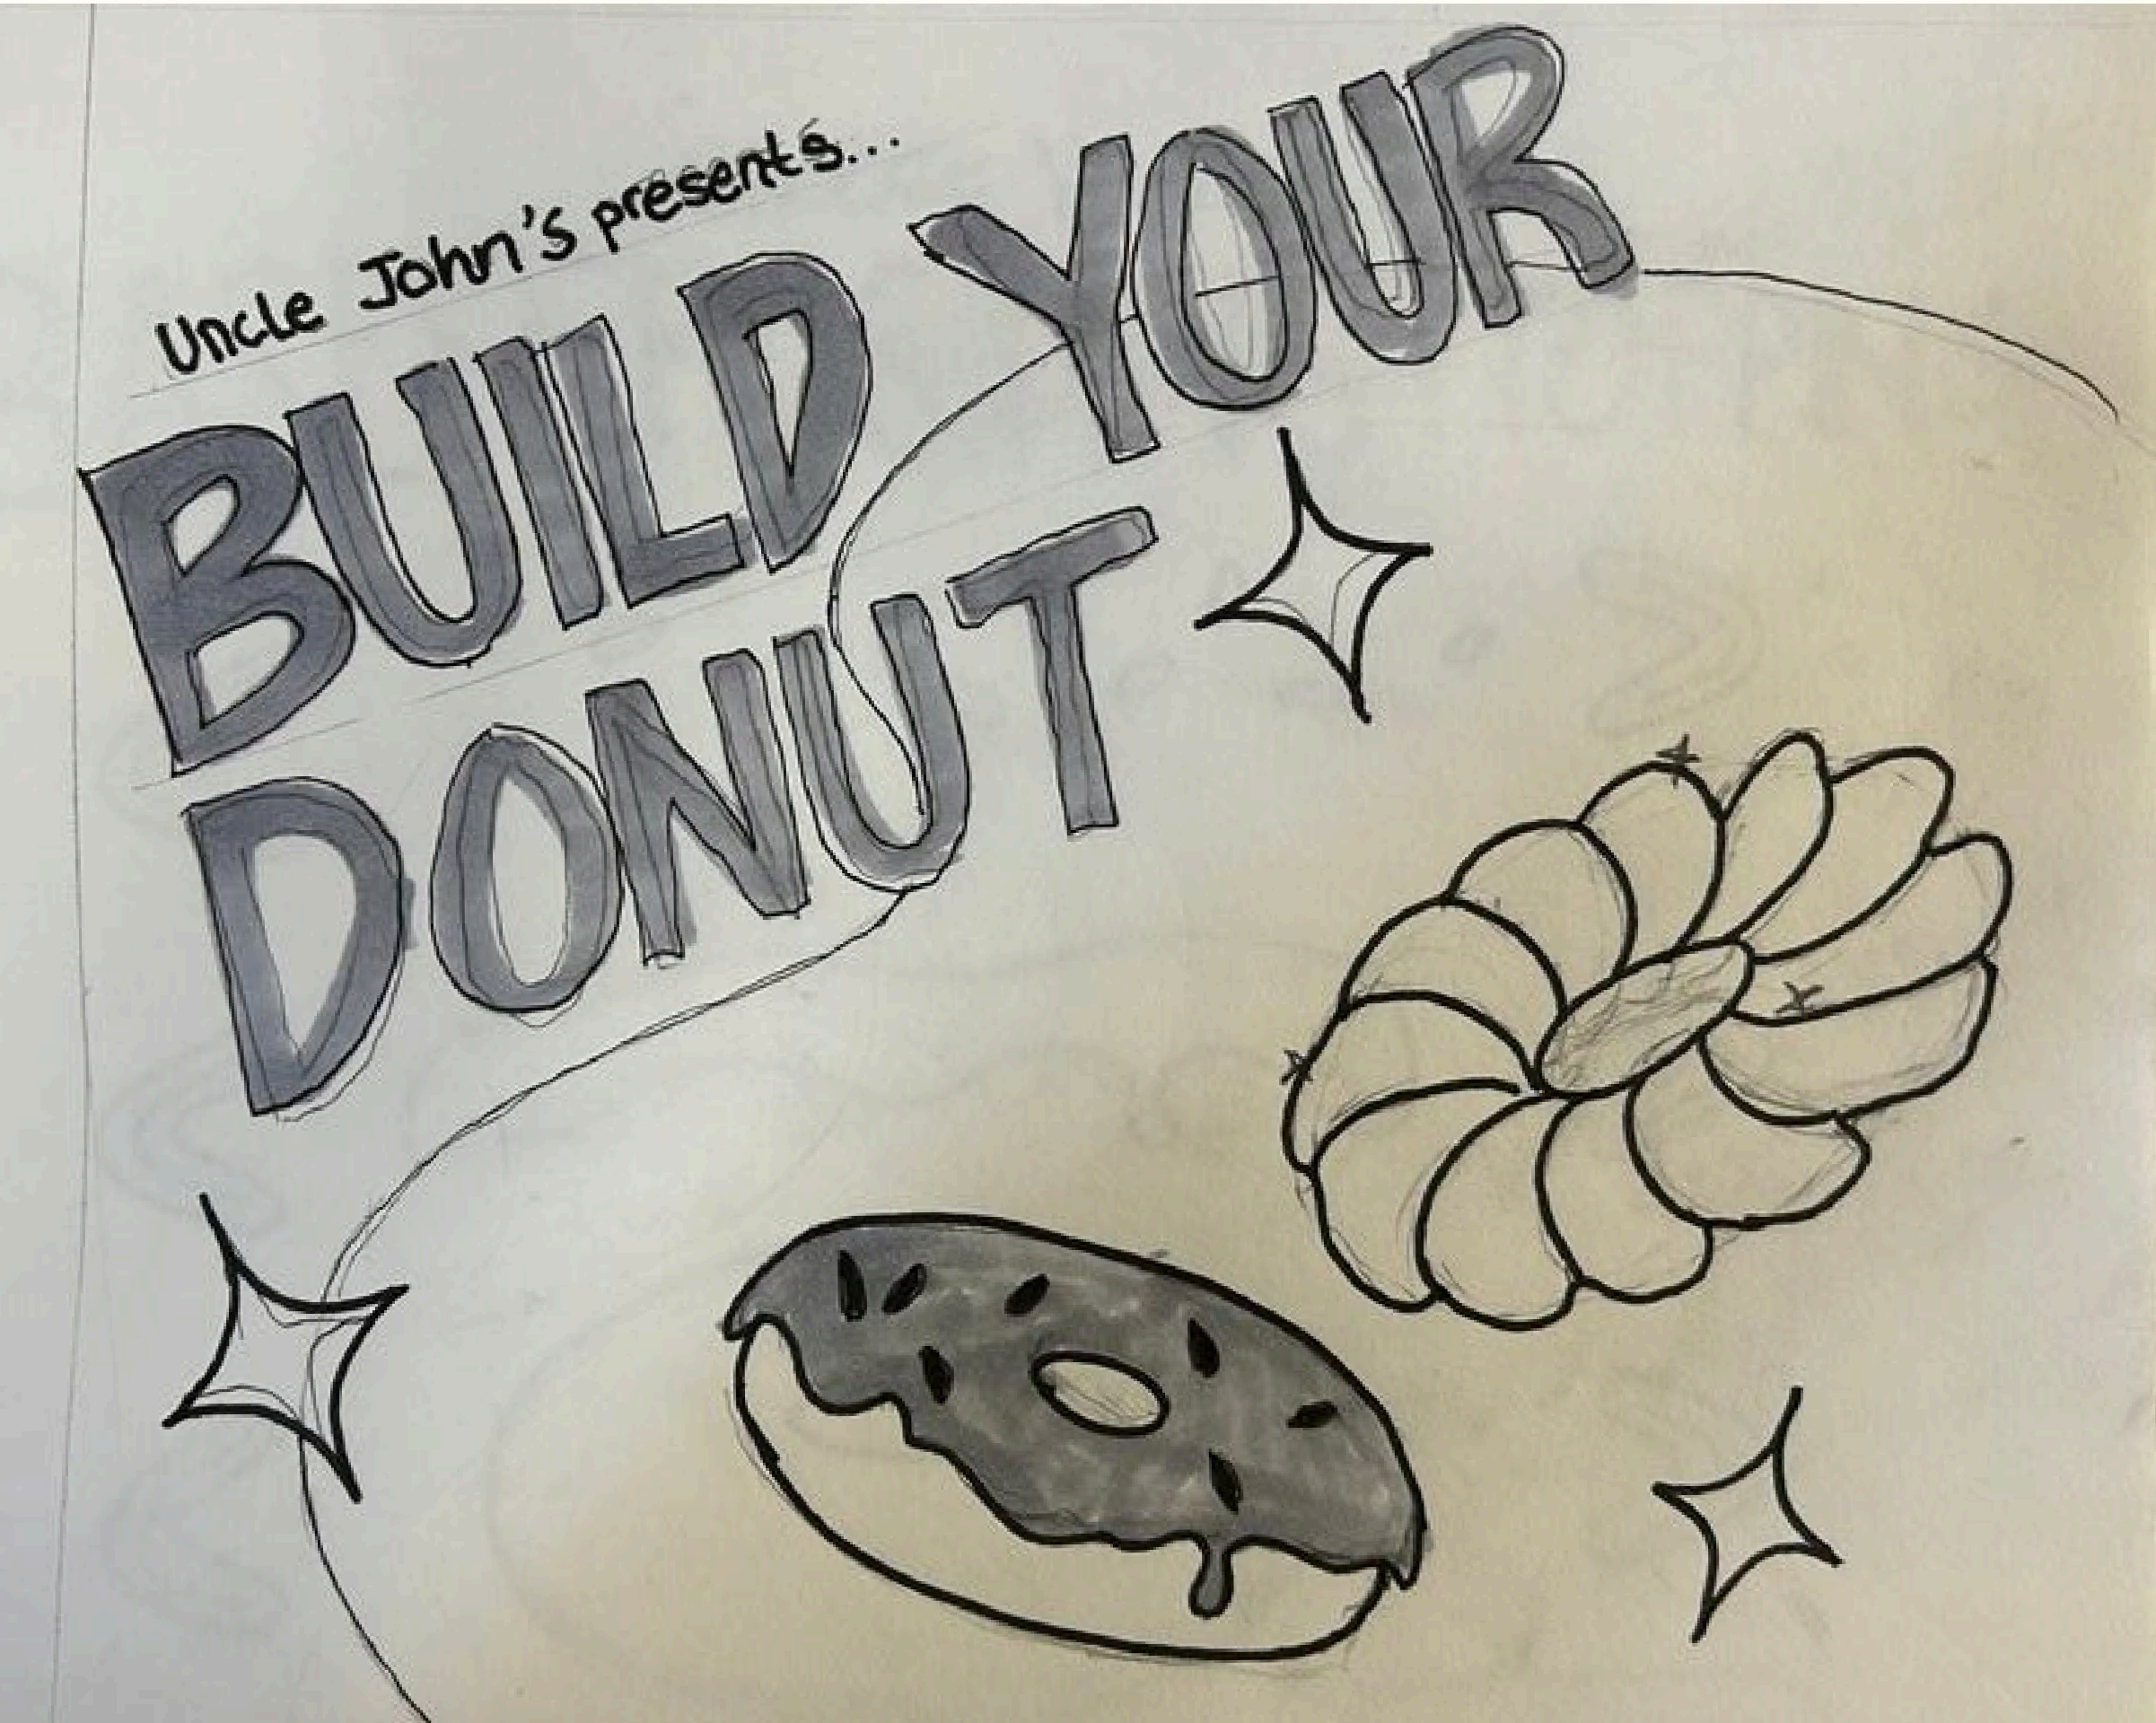 Uncle John's presents...
BUILD YOUR
DONUT